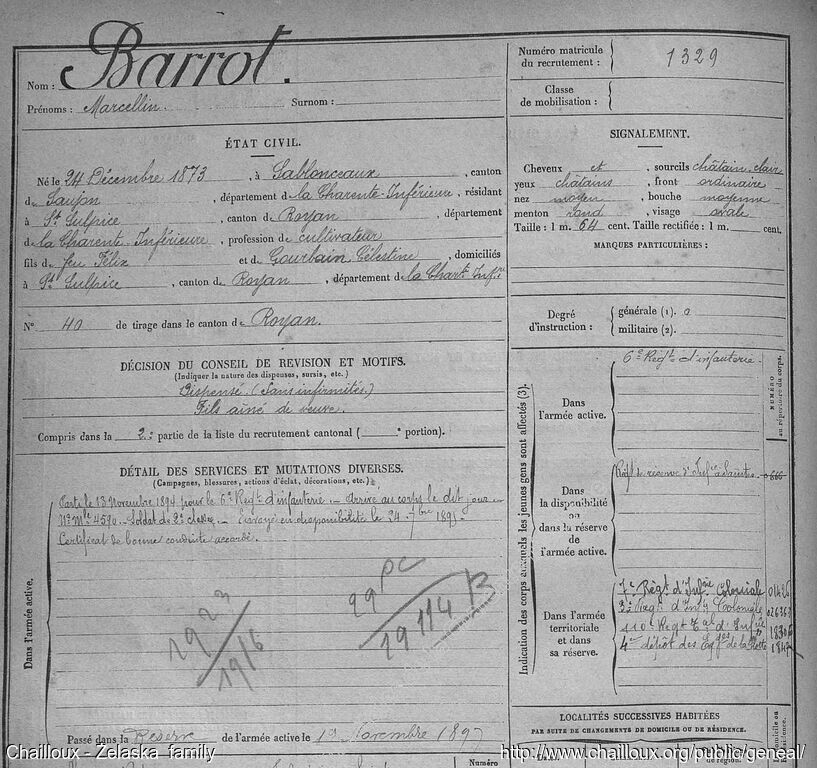 Nom : Barrot.
Prénoms : Marcellin. Surnom :
ÉTAT CIVIL.
Né le 24 Décembre 1873, à Sablonceaux, canton
de Saujon, département de la Charente-Inférieure, résidant
à St Sulpice, canton de Royan, département
de la Charente Inférieure, profession de cultivateur
fils de feu Félix et de Gourbain, Célestine, domiciliés
à St Sulpice, canton de Royan, département de la Chart. Infre
N° 40 de tirage dans le canton de Royan.
DÉCISION DU CONSEIL DE REVISION ET MOTIFS.
(Indiquer la nature des dispenses, sursis, etc.)
Dispensé. (Sans infirmités.)
Fils aîné de veuve.
Compris dans la 2e partie de la liste du recrutement cantonal ( e portion).
DÉTAIL DES SERVICES ET MUTATIONS DIVERSES.
(Campagnes, blessures, actions d'éclat, décorations, etc.)
Dans l'armée active.
Parti le 13 Novembre 1894 pour le 6e Regt d'infanterie. Arrivé au corps le dit jour
No Mle 4590. Soldat de 2e classe. Envoyé en disponibilité le 24 7bre 1895
Certificat de bonne conduite accordé.
1923
1916
99 PC
19114 B
Passé dans la Réserve de l'armée active le 1er Novembre 1897
Numéro matricule
du recrutement : 1329
Classe
de mobilisation :
SIGNALEMENT.
Cheveux et, sourcils châtain clair
yeux châtains, front ordinaire
nez moyen, bouche moyenne
menton rond, visage ovale
Taille : 1 m. 64 cent. Taille rectifiée : 1 m. cent.
MARQUES PARTICULIÈRES :
Degré
d'instruction :
générale (1). 0
militaire (2).
Indication des corps auxquels les jeunes gens sont affectés (3).
NUMÉRO
au répertoire du corps.
Dans
l'armée active.
6e Regt d'infanterie.
Dans
la disponibilité
ou
dans la réserve
de
l'armée active.
Regt de réserve d'Infie Saintes
Dans l'armée
territoriale
et dans
sa réserve.
7e Régt d'Infrie Coloniale
3e Regt d'Infie Coloniale
110e Regt Tal d'Infrie
4e dépôt des Eqges de la flotte
LOCALITÉS SUCCESSIVES HABITÉES
PAR SUITE DE CHANGEMENTS DE DOMICILE OU DE RÉSIDENCE.
Numéro
de région.
Domicile ou
résidence.
Chailloux - Zelaska family
http://www.chailloux.org/public/geneal/